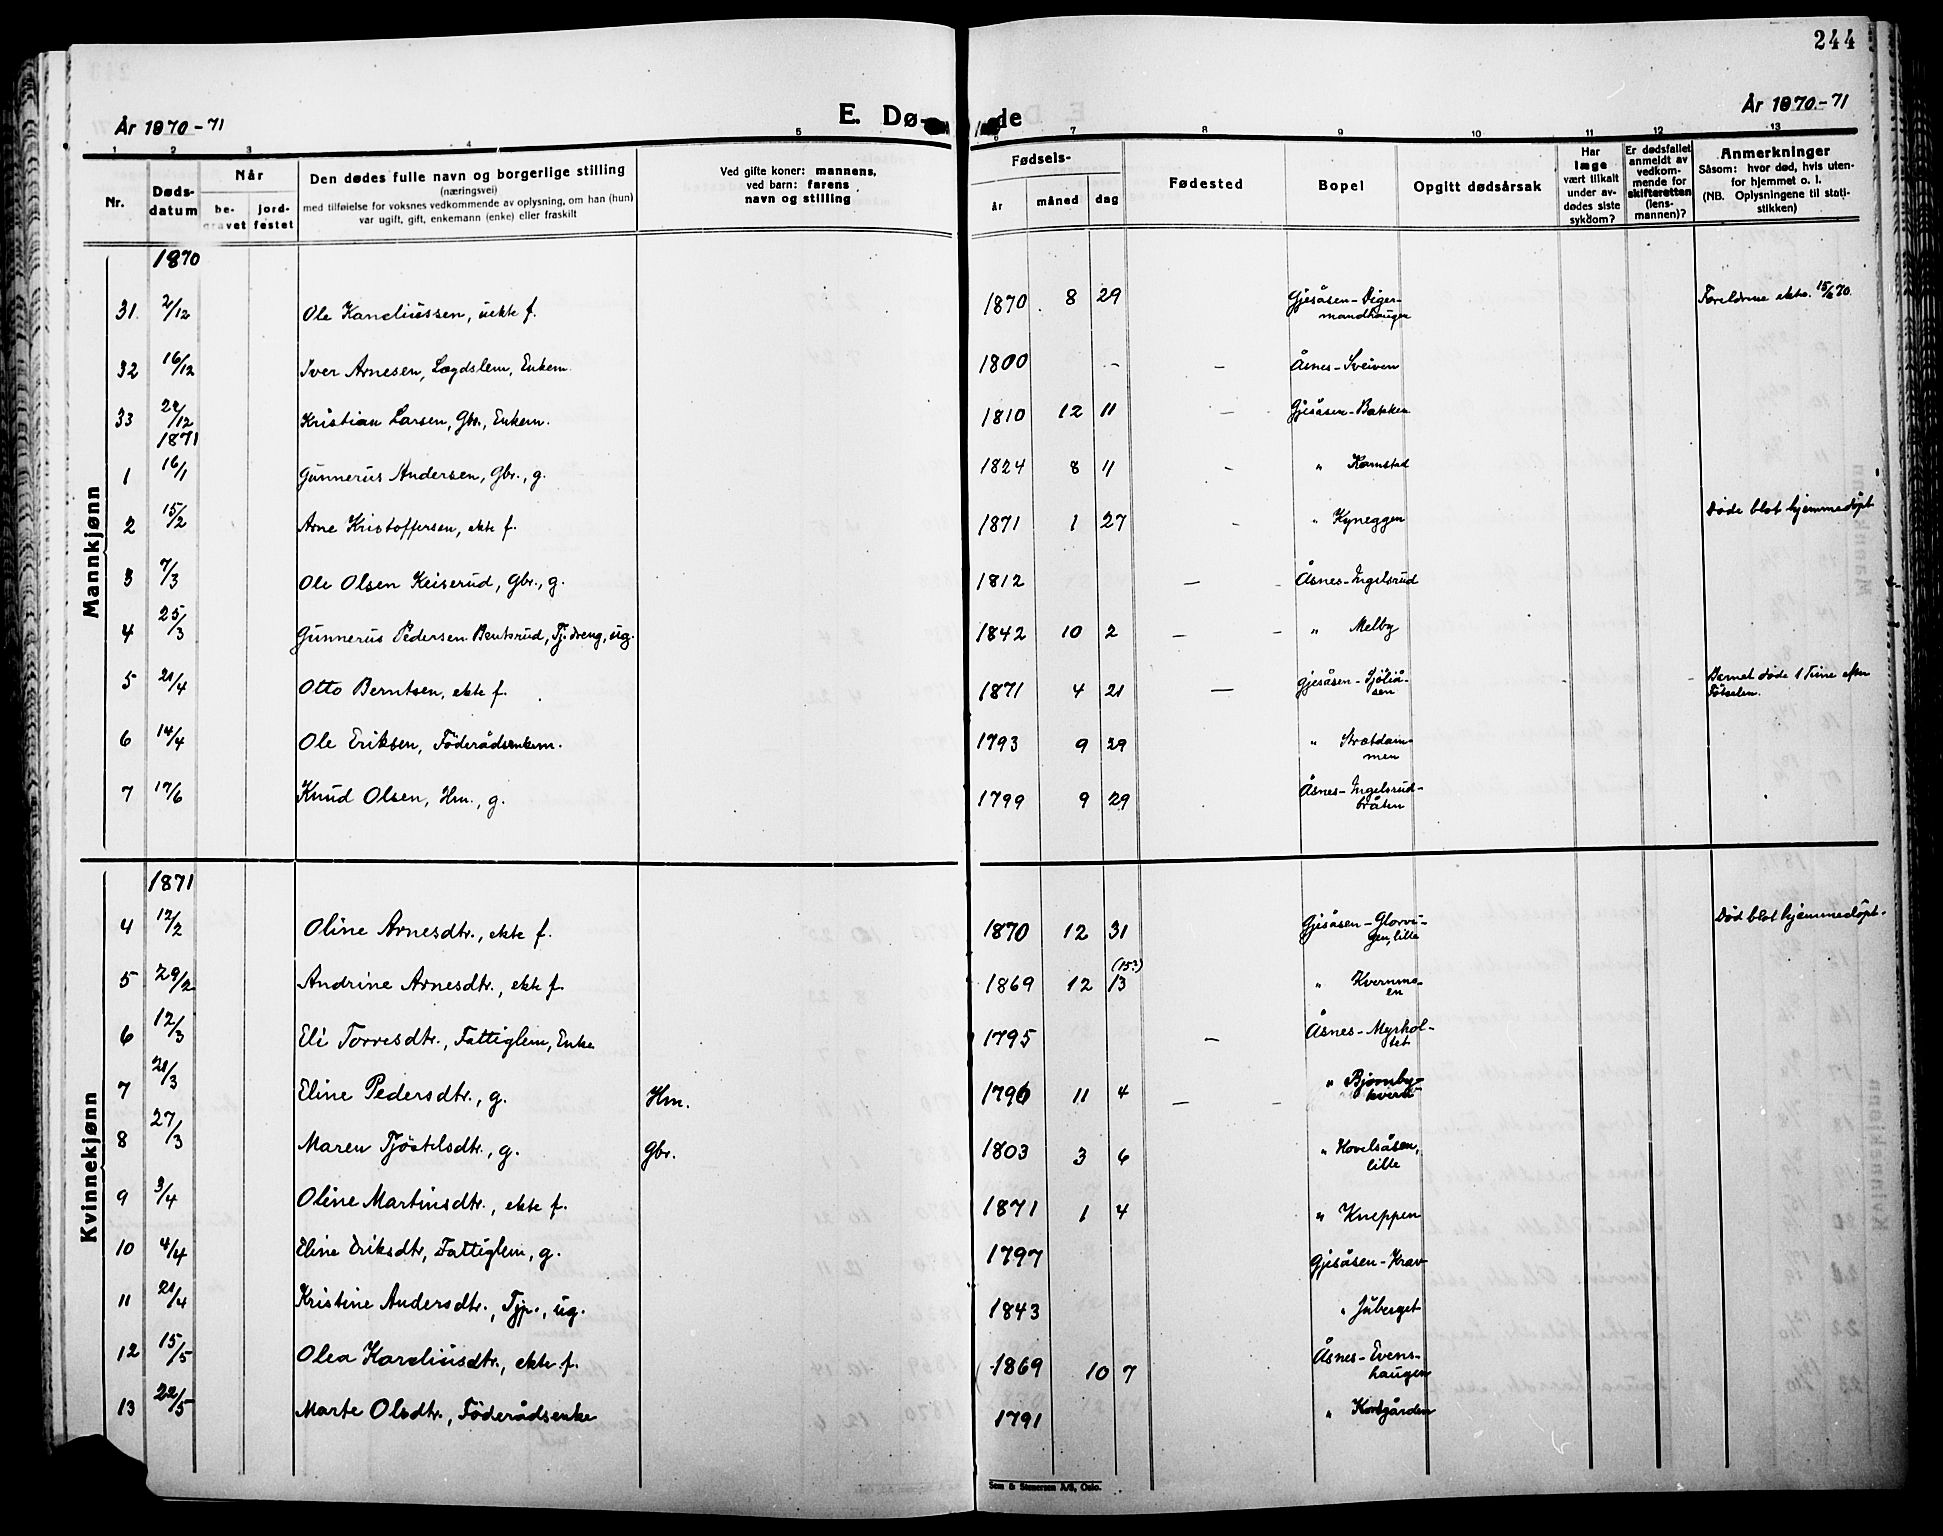 244
E. Dø- de
År 1870-71
År 1870-71
1 2 3 4 5 6 7 8 9 10 11 12 13
Nr.
Døds-
datum
Når
be-
gravet
jord-
festet
Den dødes fulle navn og borgerlige stilling
(næringsvei)
med tilføielse for voksnes vedkommende av oplysning, om han (hun)
var ugift, gift, enkemann (enke) eller fraskilt
Ved gifte koner: mannens,
ved barn: farens
navn og stilling
Fødsels-
år måned dag
Fødested
Bopel
Opgitt dødsårsak
Har
læge
vært tilkalt
under av-
dødes siste
sykdom?
Er dødsfallet
anmeldt av
vedkom-
mende for
skifteretten
(lens-
mannen)?
Anmerkninger
Såsom: hvor død, hvis uten-
for hjemmet o. l.
(NB. Oplysningene til stati-
stikken)
Mannkjønn
1870
31 2/12 Ole Kaneliussen, uekte f. 1870 8 29 Gjesåsen-Diger-
mandhaugen Foreldrene ekte. 15/6 70.
32 16/12 Iver Arnesen, Lægdslem, Enkem. 1800 - - Åsnes-Sveiven
33 24/12 Kristian Larsen, Gbr., Enkem. 1810 12 11 - Gjesåsen-Bakken
1871
1 16/1 Gunnerus Andersen, Gbr., g. 1824 8 11 - " Kamstad
2 15/2 Arne Kristoffersen, ekte f. 1871 1 27 - " Kyneggen Døde blot hjemmedøpt
3 7/3 Ole Olsen Keiserud, Gbr., g. 1812 - - Åsnes-Ingelsrud
4 25/3 Gunnerus Pedersen Bentsrud, Tj.dreng, ug. 1842 10 2 - - " Melby
5 21/4 Otto Berntsen, ekte f. 1871 4 21 — Gjesåsen-Sjøliå-
sen Barnet døde 1 Time efter
Fødselen.
6 14/4 Ole Eriksen, Föderådsenkem. 1793 9 29 " Strætdam-
men
7 17/6 Knud Olsen, Hm., g. 1799 9 29 Åsnes-Ingelsrud-
bråten
Kvinnekjønn
1871
4 12/2 Oline Arnesdtr., ekte f. 1870 12 31 Gjesåsen-Glorvi-
gen, lille Død blot hjemmedøpt.
5 29/2 Andrine Arnesdtr., ekte f. 1869 12 (15?)
13 " Kvernmo-
en
6 12/3 Eli Torresdtr., Fattiglem, Enke 1795 — Åsnes-Myrhol-
tet
7 21/3 Eline Pedersdtr., g. Hm. 1796 11 4 - - " Bjørnby-
kvern
8 27/3 Maren Tjöstelsdtr., g. Gbr. 1803 3 6 " Hovelsåsen,
lille
9 3/4 Oline Martinsdtr., ekte f. 1871 1 4 " Kneppen
10 4/4 Eline Eriksdtr, Fattiglem, g. 1797 Gjesåsen-Krav
11 21/4 Kristine Andersdtr., Tjp., ug. 1843 " Juberget
12 15/5 Olea Kareliusdtr., ekte f. 1869 10 7 Åsnes-Evens-
haugen
13 22/5 Marte Olsdtr., Föderådsenke 1791 "
Sem & Stenersen A/S, Oslo.